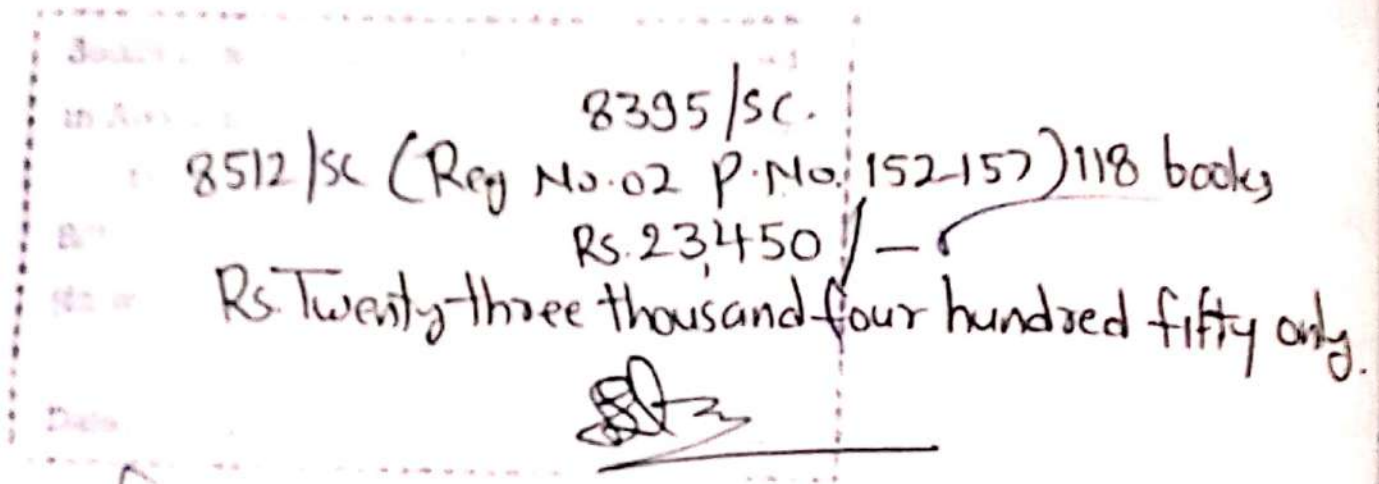 8395/sc.
8512/sc (Reg No.02 P.No. 152-157) 118 books
Rs. 23,450/-
Rs. Twenty-three thousand four hundred fifty only.